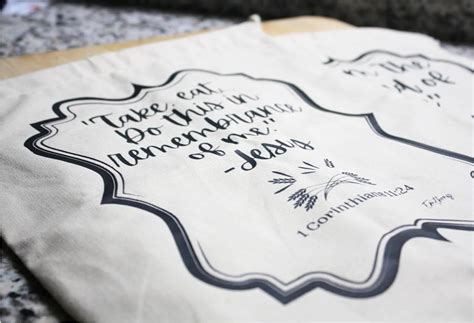 "Take, eat.
Do this in
remembrance
of me."
-Jesus
1 Corinthians 11:24
the
of